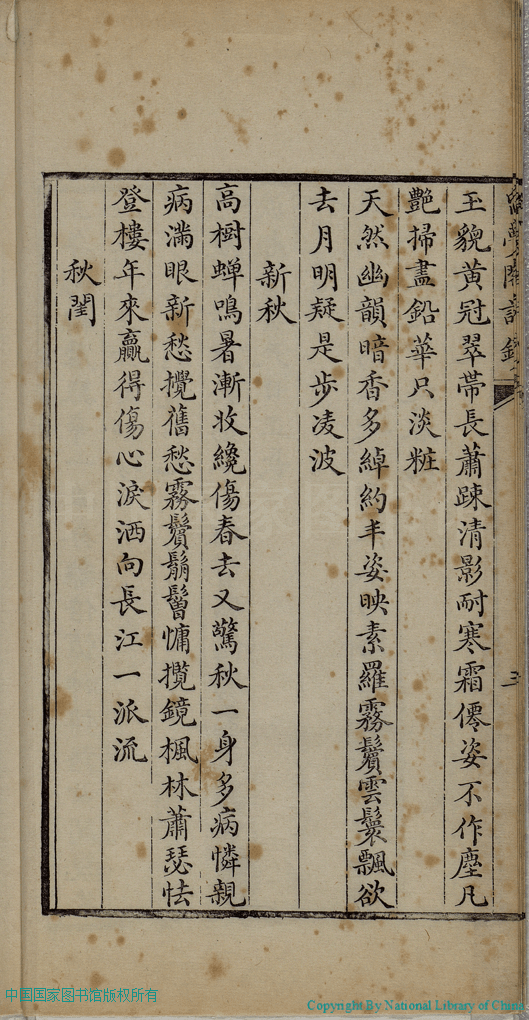 玉貌黃冠翠帶長蕭踈清影耐寒霜僊姿不作塵凡
艷掃盡鉛華只淡粧
天然幽韻暗香多綽約丰姿映素羅霧鬢雲鬟飄欲
去月明疑是步凌波
新秋
高樹蟬鳴暑漸收纔傷春去又驚秋一身多病憐親
病滿眼新愁攪舊愁霧鬢鬅鬙慵攬鏡楓林蕭瑟怯
登樓年來贏得傷心淚洒向長江一派流
秋閨
中国国家图书馆版权所有
Copyright By National Library of China